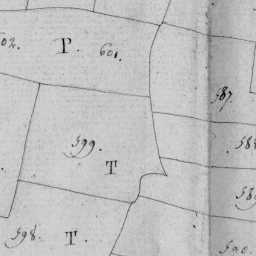 602. P. 601.
587.
599.
T
588
589
598. T.
590.